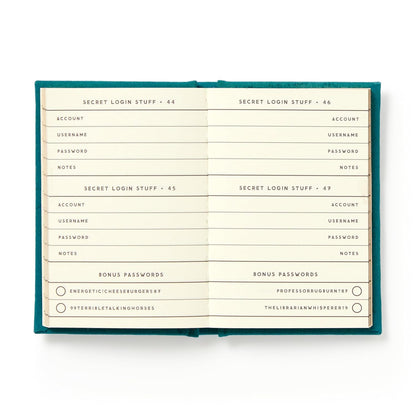 SECRET LOGIN STUFF • 44
ACCOUNT
USERNAME
PASSWORD
NOTES
SECRET LOGIN STUFF • 45
ACCOUNT
USERNAME
PASSWORD
NOTES
BONUS PASSWORDS
ENERGETIC!CHEESEBURGERS#7
99TERRIBLETALKINGHORSES
SECRET LOGIN STUFF • 46
ACCOUNT
USERNAME
PASSWORD
NOTES
SECRET LOGIN STUFF • 47
ACCOUNT
USERNAME
PASSWORD
NOTES
BONUS PASSWORDS
THELIBRARIANWHISPERER19